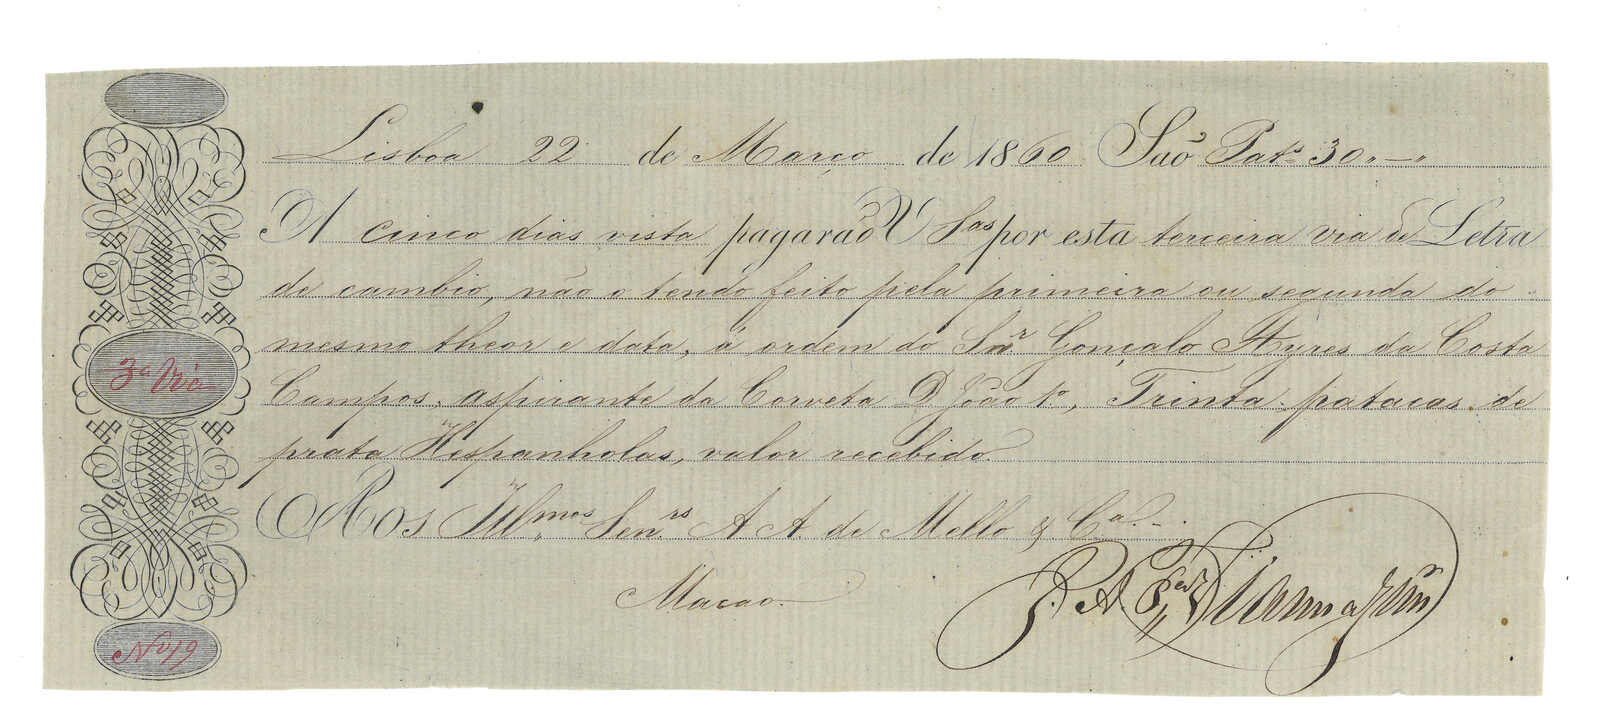 Lisboa 22 de Março de 1860 São Pat.s 30,,—,,
A cinco dias vista pagarão V S.as por esta terceira via de Letra
de cambio, não o tendo feito pela primeira ou segunda do
mesmo theor e data, á ordem do Snr. Gonçalo Ayres da Costa
Campos, aspirante da Corveta D João 1º, Trinta patacas de
prata Hespanholas, valor recebido.
Aos Ill.mos Sen.rs A A. de Mello & C.a
Macao.
3ª Via
Nº 19